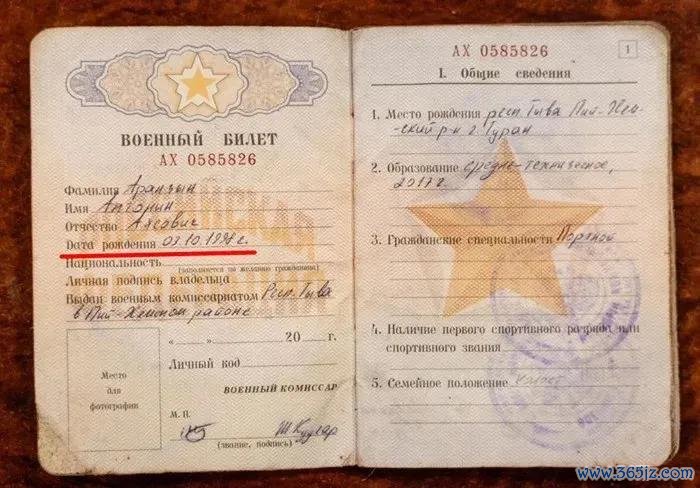 ВОЕННЫЙ БИЛЕТ
АХ 0585826
Фамилия Аранзын
Имя Анторын
Отчество Аясович
Дата рождения 03.10.1998 г.
Национальность
(заполняется по желанию гражданина)
Личная подпись владельца
Выдан военным комиссариатом Респ. Тыва
в Пий-Хемском районе
Место
для
фотографии
„ “ 20 г.
Личный код
ВОЕННЫЙ КОМИССАР
М. П.
(звание, подпись)
АХ 0585826
1
I. Общие сведения
1. Место рождения респ Тыва Пий-Хем-
ский р-н г. Туран
2. Образование средне-техническое,
2017 г.
3. Гражданские специальности Портной
4. Наличие первого спортивного разряда или
спортивного звания
5. Семейное положение холост
www.365jz.com